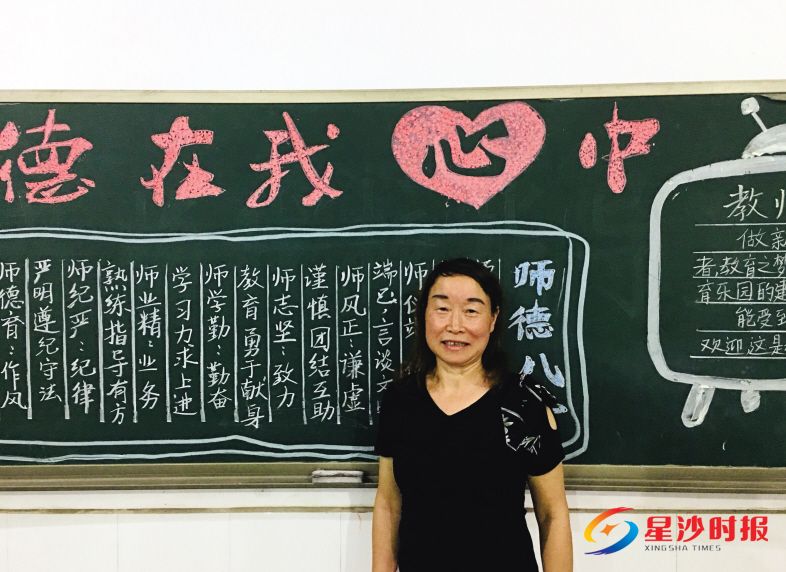 德在我心中
师德八
端己:言谈文
师风正:谦虚
谨慎团结互助
师志坚:致力
教育勇于献身
师学勤:勤奋
学习力求上进
师业精:业务
熟练指导有方
师纪严:纪律
严明遵纪守法
师德育:作风
教师
做新
者,教育之梦
育乐园的建
能受到
欢迎这是
星沙时报
XINGSHA TIMES